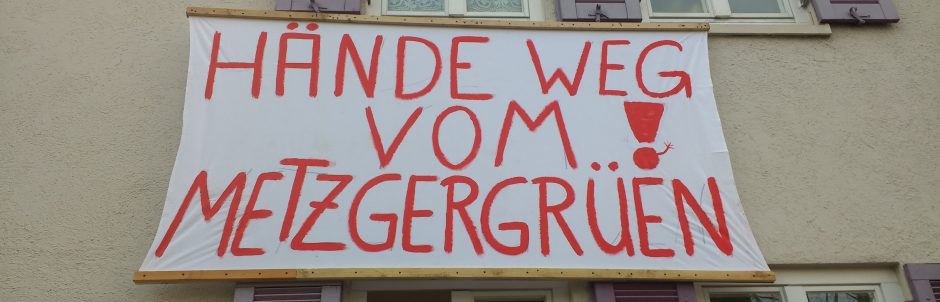 HÄNDE WEG
VOM!
METZGERGRÜEN